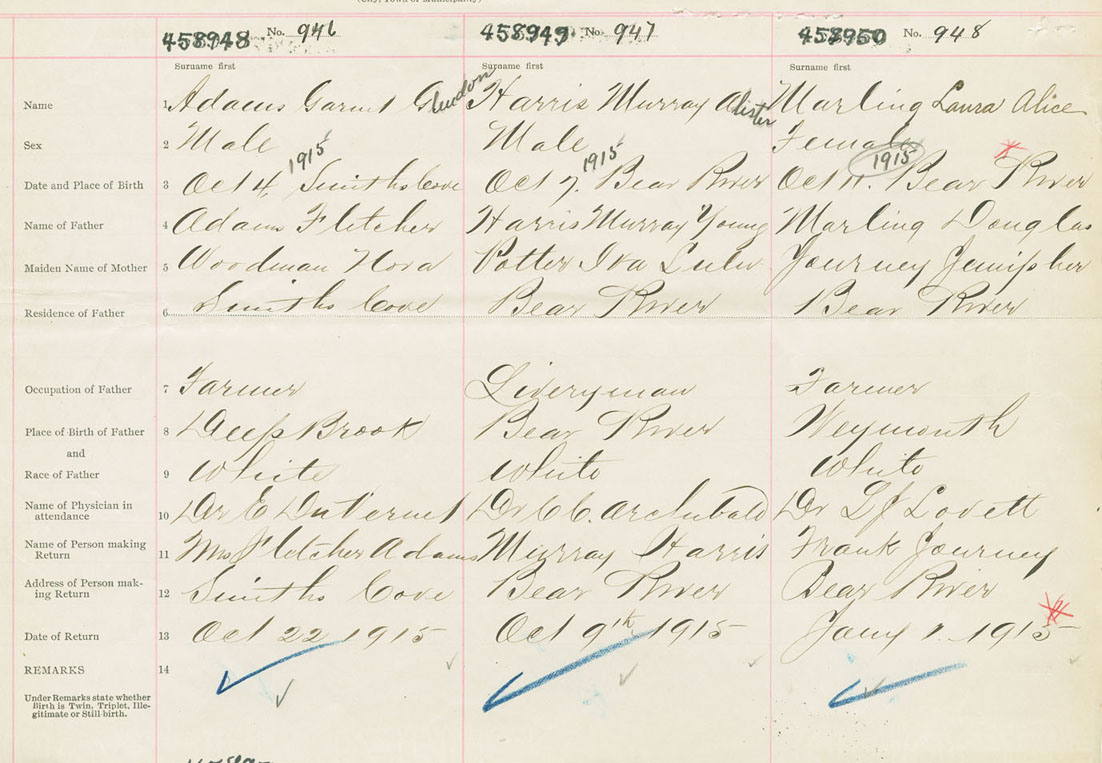 (City, Town or Municipality)
458948 No. 946 458949 No. 947 458950 No. 948
Surname first Surname first Surname first
Name 1 Adams Garnet Harris Murray Alister Marling Laura Alice
Sex 2 Male Male Female
1915 1915 1915
Date and Place of Birth 3 Oct 4, Smiths Cove Oct 7, Bear River Oct 11. Bear River
Name of Father 4 Adams Fletcher Harris Murray Young Marling Douglas
Maiden Name of Mother 5 Woodman Nora Potter Iva Lulu Journey
Residence of Father 6 Smiths Cove Bear River Bear River
Occupation of Father 7 Farmer Liveryman Farmer
Place of Birth of Father 8 Deep Brook Bear River Weymouth
and
Race of Father 9 White White White
Name of Physician in
attendance 10 Dr E DuVernet Dr C C. Archibald Dr L J Lovett
Name of Person making
Return 11 Mrs Fletcher Adams Murray Harris Frank Journey
Address of Person mak-
ing Return 12 Smiths Cove Bear River Bear River
Date of Return 13 Oct 22 1915 Oct 9th 1915 1915
REMARKS 14
Under Remarks state whether
Birth is Twin, Triplet, Ille-
gitimate or Still-birth.